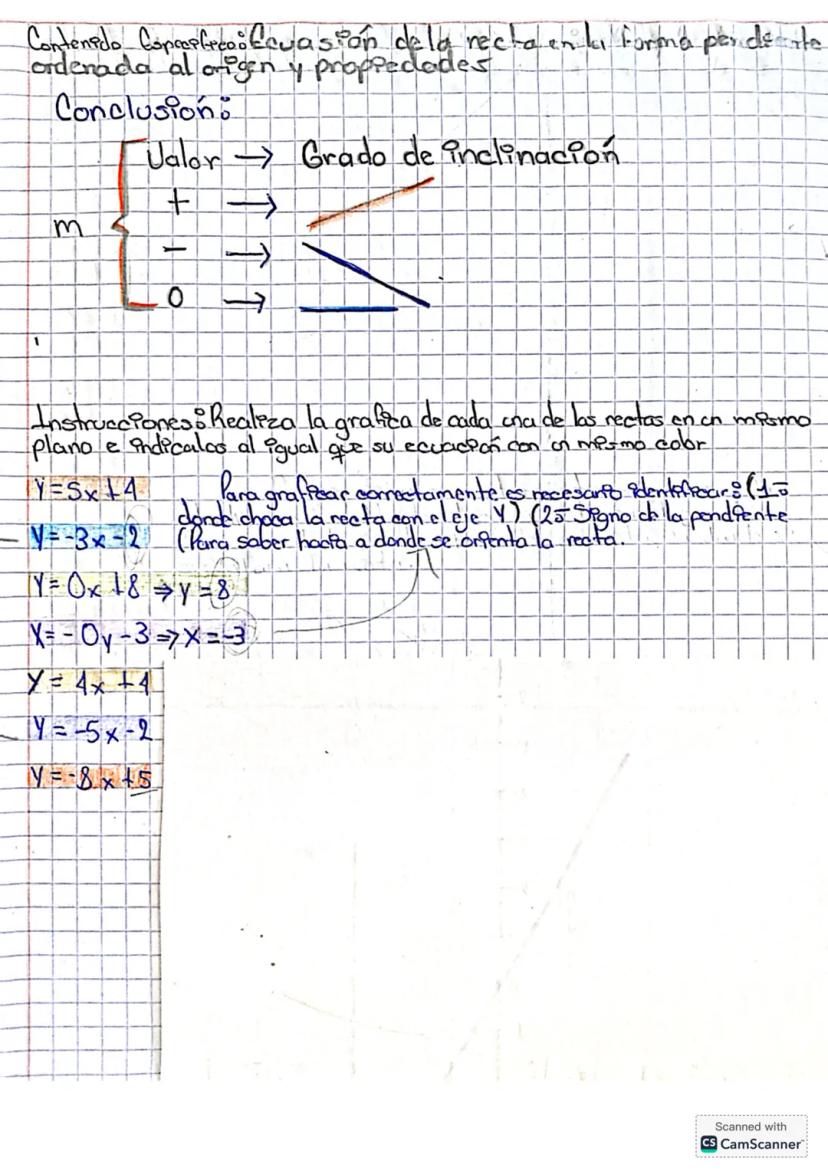 Contenido Especifico: Ecuasión de la recta en la forma pendiente
ordenada al origen y propiedades
Conclusión:
Valor → Grado de inclinación
+ →
m
- →
0 →
Instrucciones: Realiza la grafica de cada una de las rectas en un mismo
plano e indicalas al igual que su ecuación con un mismo color
Y=5x+4
Para graficar correctamente es necesario identificar: (1=
donde choca la recta con el eje Y) (2= Signo de la pendiente
Y=-3x-2
(Para saber hacia a donde se orienta la recta.
Y=0x+8 ⇒ y=8
X=-0y-3 ⇒ X=-3
Y=4x+4
Y=-5x-2
Y=-8x+5
Scanned with
CS CamScanner